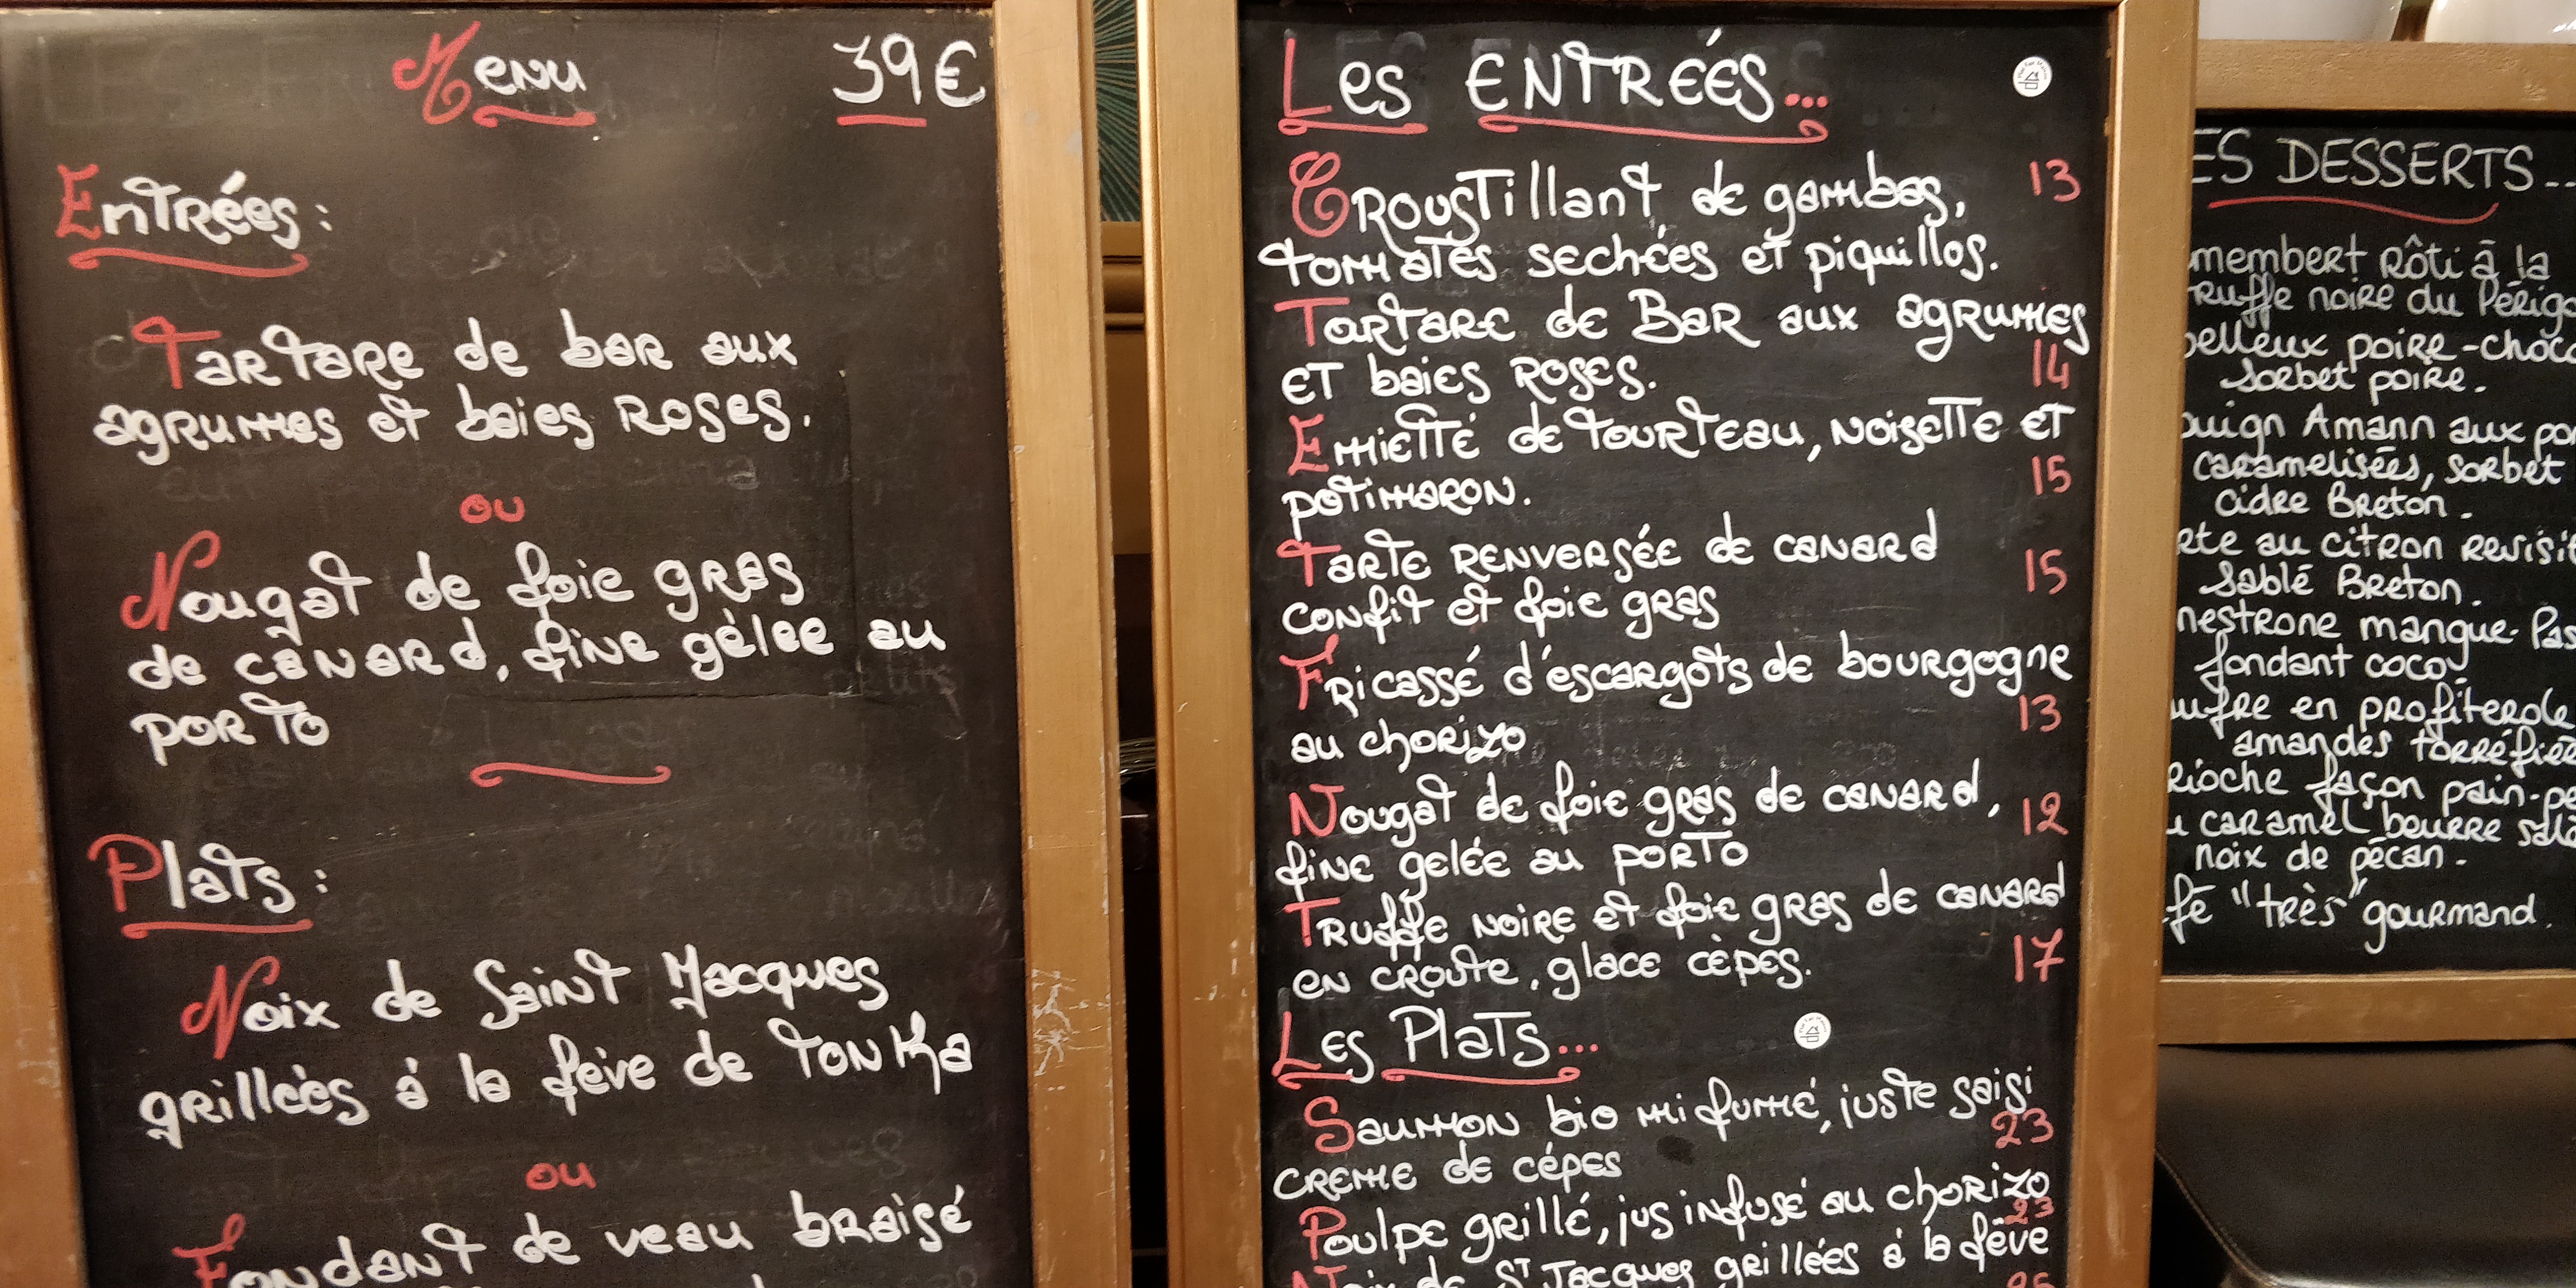 Menu 39€
Entrées :
Tartare de bar aux
agrumes et baies roses.
ou
Nougat de foie gras
de canard, fine gelée au
porto
Plats :
Noix de Saint Jacques
grillées á la fève de Tonka
ou
Fondant de veau braisé
Les ENTRÉES...
Croustillant de gambas, 13
tomates sechées et piquillos.
Tartare de Bar aux agrumes
et baies roses. 14
Emietté de tourteau, noisette et
potimaron. 15
Tarte renversée de canard
confit et foie gras 15
Fricassé d'escargots de bourgogne
au chorizo 13
Nougat de foie gras de canard, 12
fine gelée au porto
Truffe noire et foie gras de canard
en croute, glace cèpes. 17
Les Plats...
Saumon bio mi fumé, juste saisi
23
creme de cépes
Poulpe grillé, jus infusé au chorizo
23
Noix de St Jacques grillées á la fêve
ES DESSERTS...
membert Rôti à la
ruffe noire du Périg
elleux poire-choco
Sorbet poire.
ouign Amann aux po
caramelisées, sorbet
cidre Breton.
rte au citron revisi
Sablé Breton.
nestrone mangue-Pas
fondant coco.
ufre en profiterole
amandes torréfiée
rioche façon pain-pe
u caramel beurre sal
noix de pécan.
fé "très" gourmand.